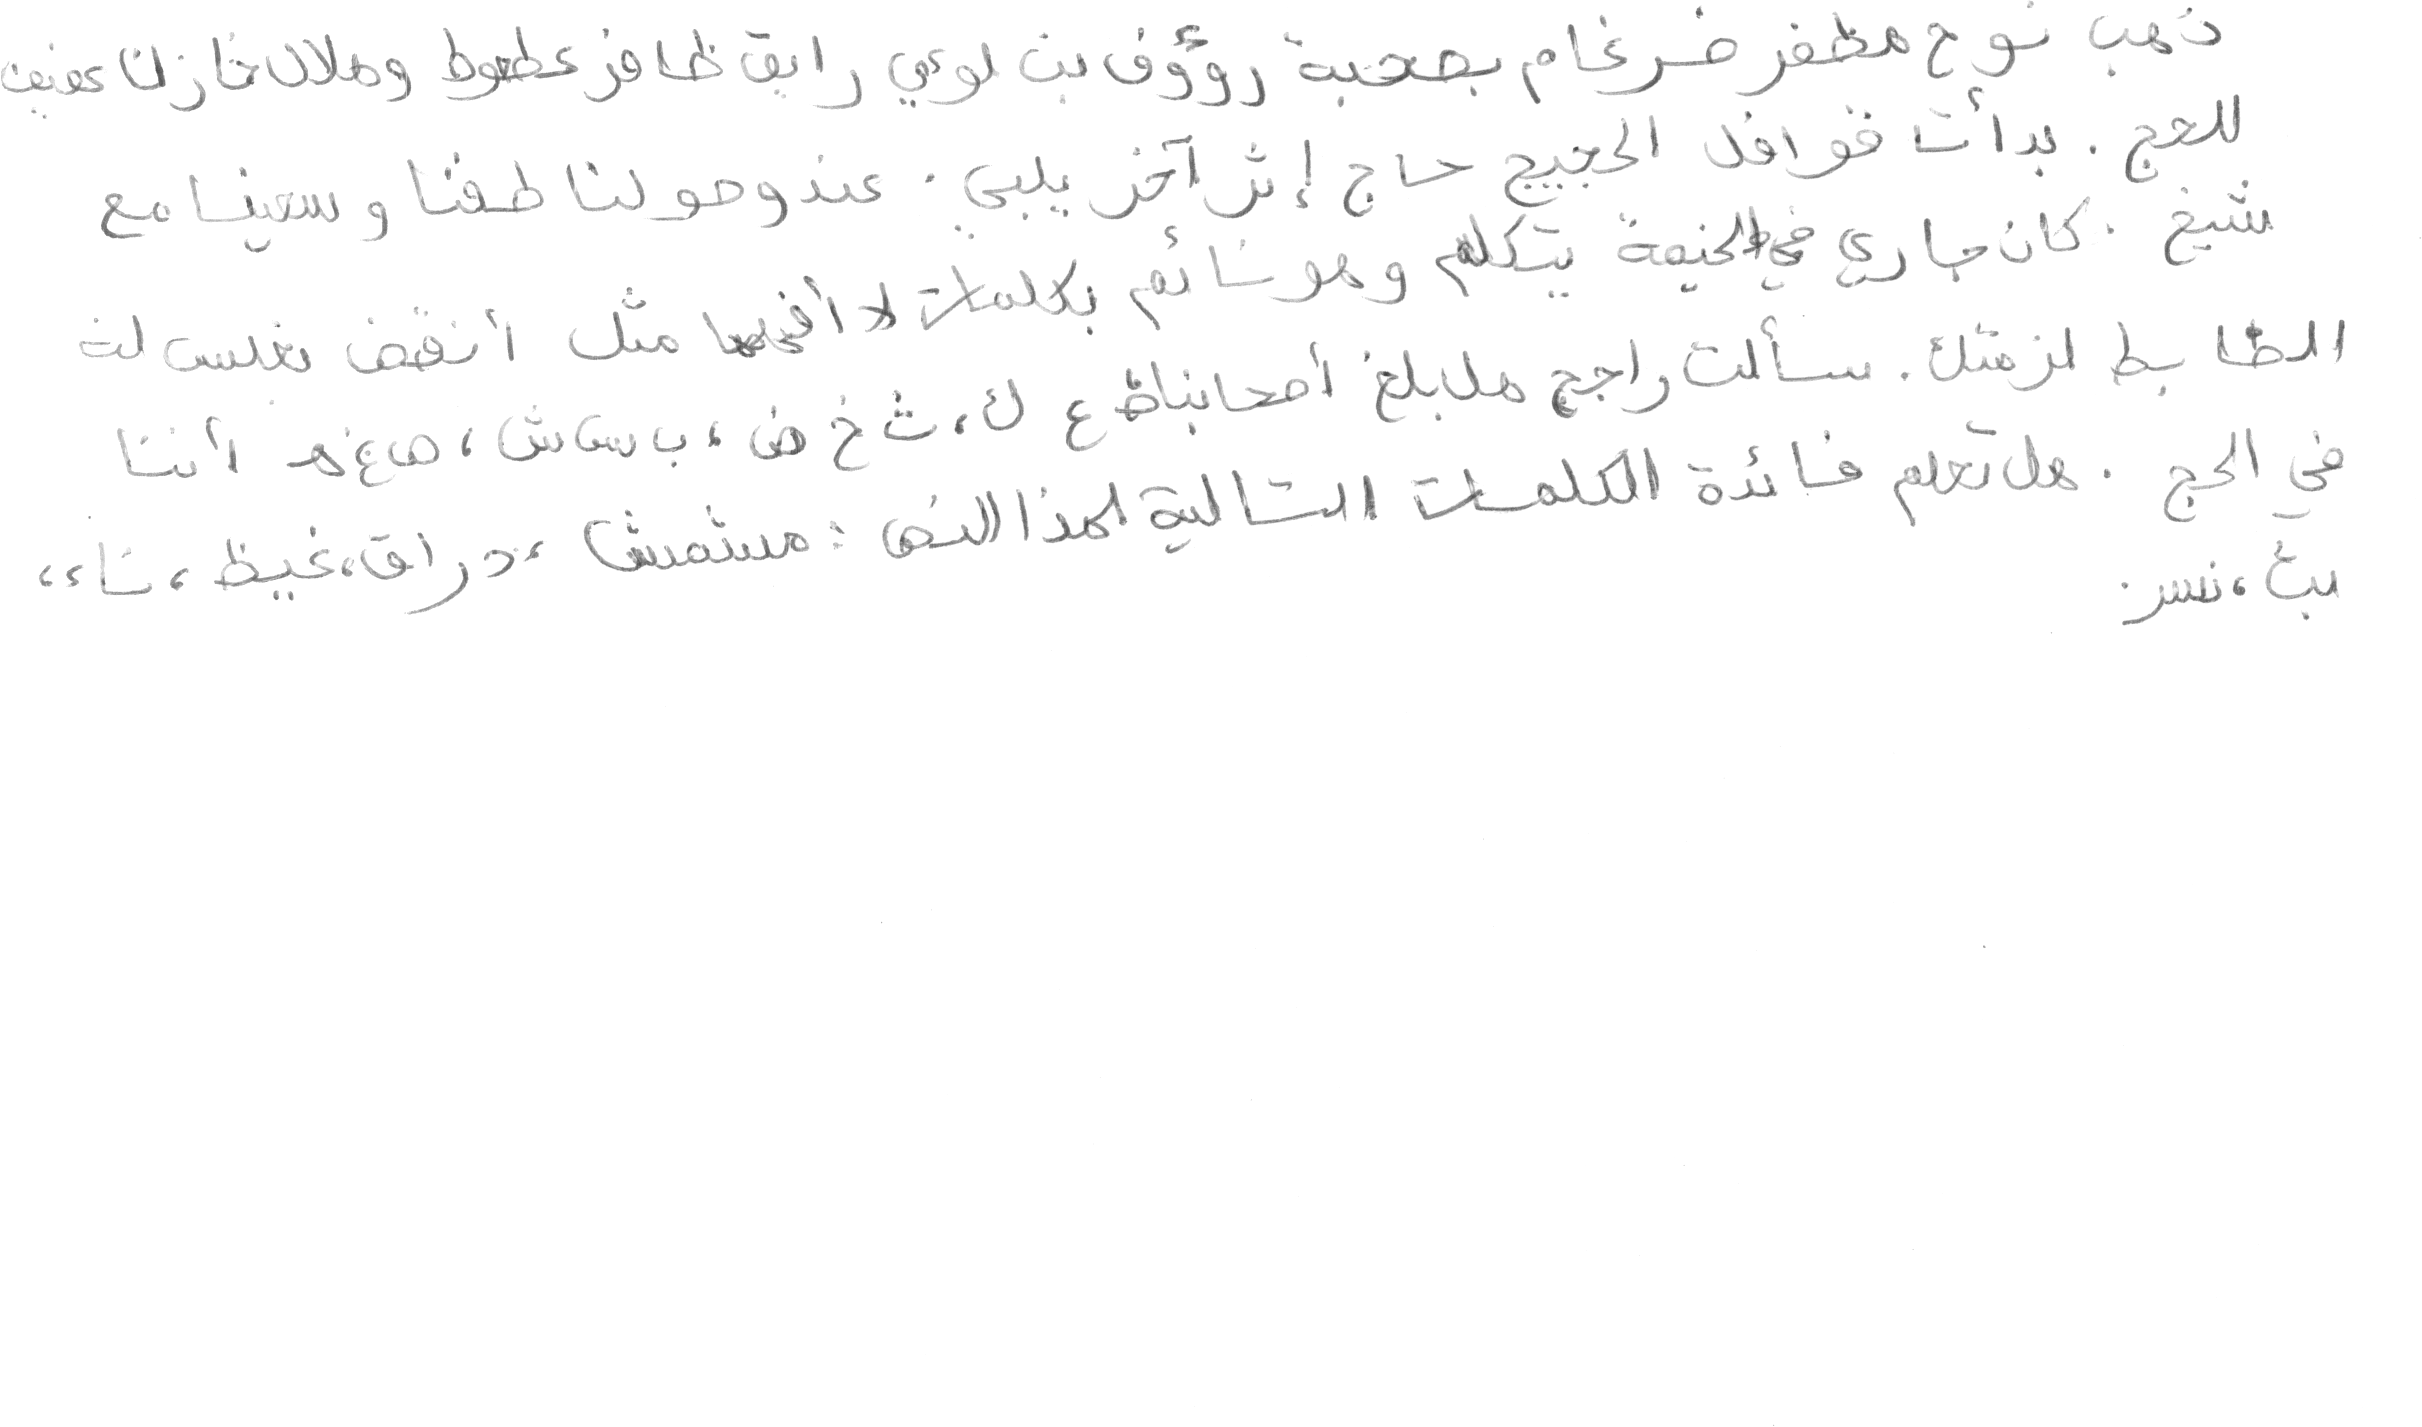 ذهب نوح مظفر ضرغام بصحبة رؤوف بن لؤي رايق ظافر عطعوط وهلال خازن عفيف
للحج . بدأت قوافل الحجيج حاج إثر آخر يلبي . عند وصولنا طفنا وسعينا مع
شيخ . كان جاري في الخيمة يتكلم وهو نائم بكلمات لا أفهمها مثل أنقض بغلس لت
الظابط لزمتك . سألت راجح هل بلغ أصحابنا ظ ع ك، ث خ ض ، ب س ش ، ص غ ه أننا
في الحج . هل تعلم فائدة الكلمات التالية لهذا النص : مشمش ، دراق، غيظ ، ناء ،
بث ، نسر